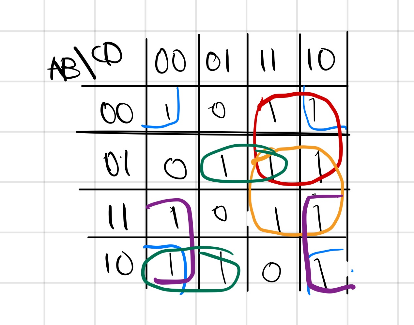 AB\CD 00 01 11 10
00 1 0 1 1
01 0 1 1 1
11 1 0 1 1
10 1 1 0 1